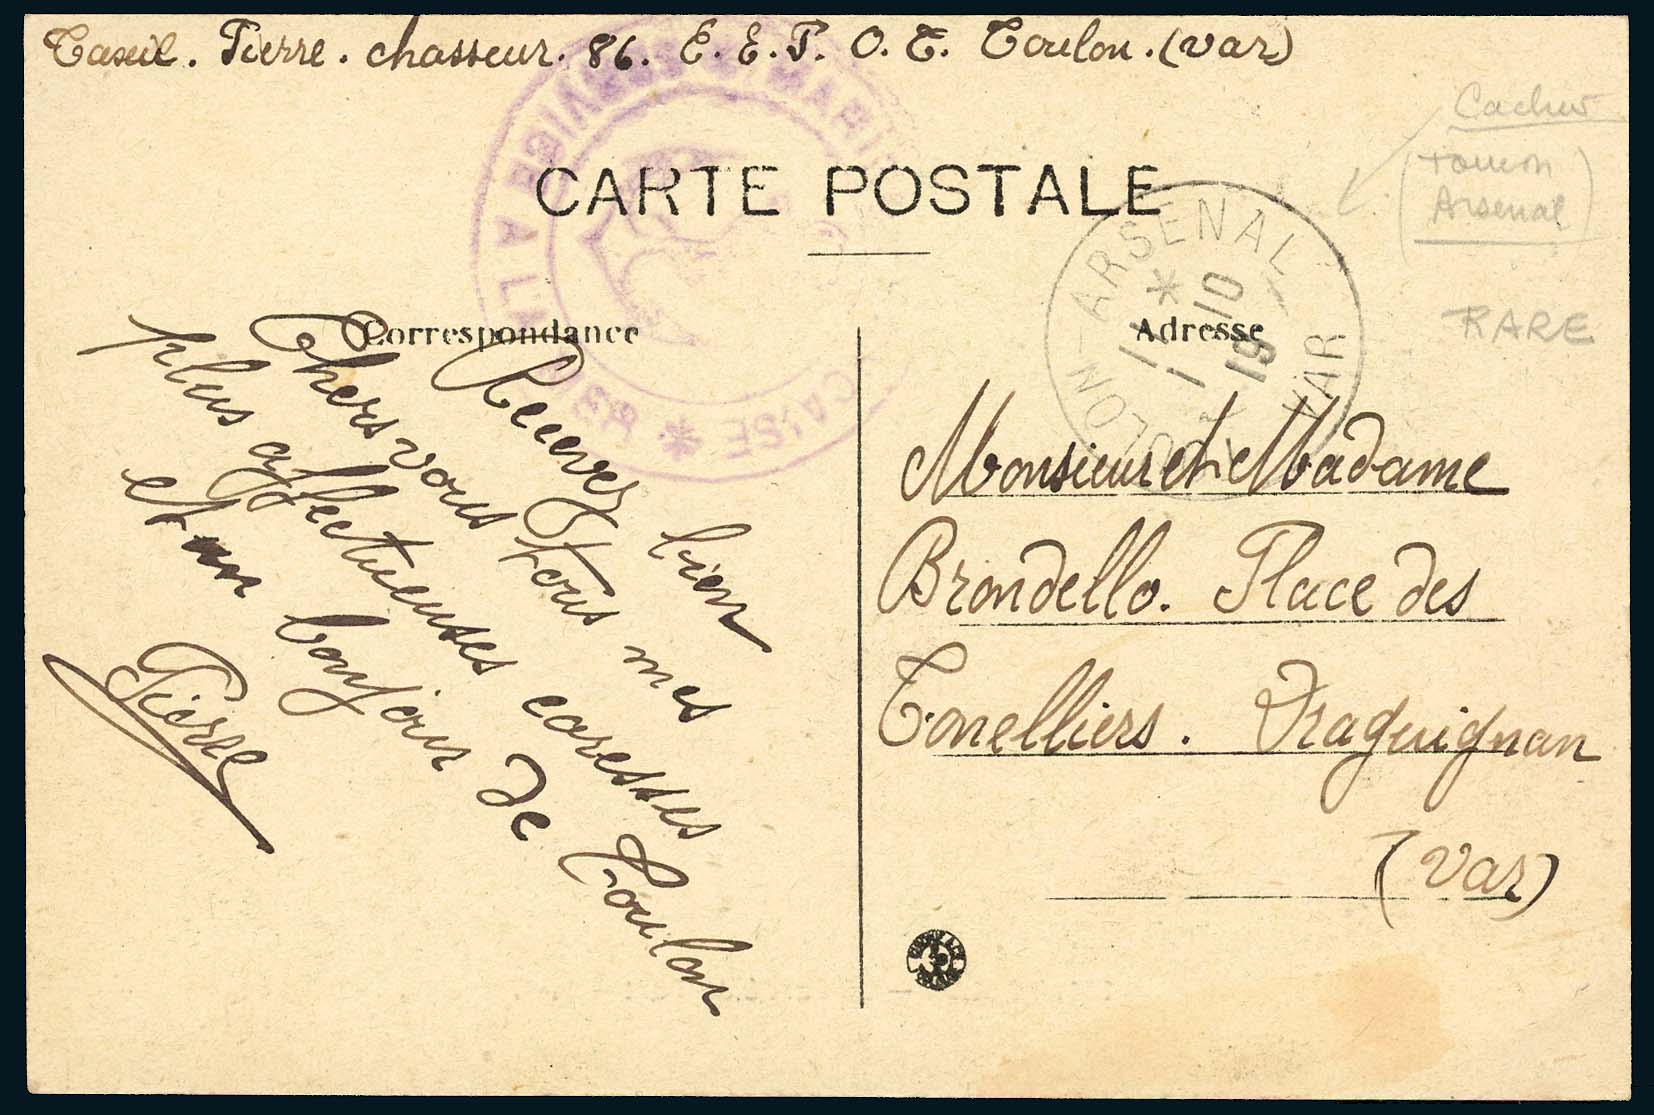 Taxil. Pierre. chasseur. 86. E. E. P. O. T. Toulon. (Var)
Cachet
Toulon
Arsenal
RARE
CARTE POSTALE
MARINE FRANÇAISE * SERVICE A LA MER
TOULON-ARSENAL VAR
* 11 10 19
Correspondance
Adresse
Recevez bien
Chers vous tous mes
plus affectueuses caresses
et un bonjour de Toulon
Pierre
Monsieur et Madame
Brondello. Place des
Tonelliers. Draguignan
(Var)